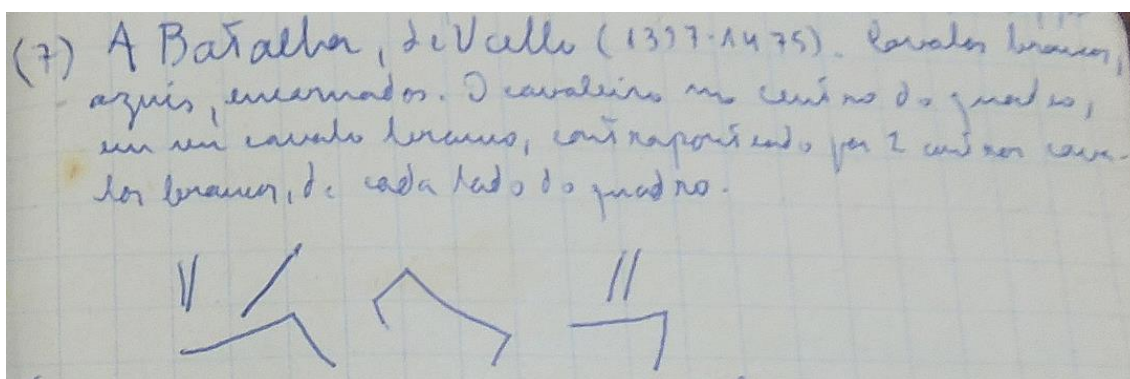 (7) A Batalha, de Ucello (1397-1475). Cavalos brancos,
azuis, encarnados. O cavaleiro no centro do quadro,
em um cavalo branco, contraponteado por 2 outros cava-
los brancos, de cada lado do quadro.